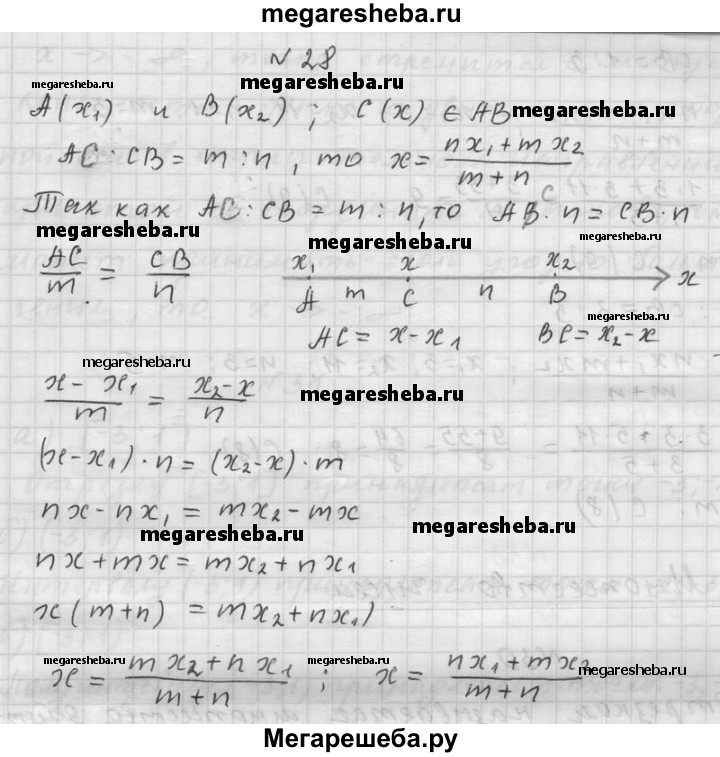 megaresheba.ru
N 28
megaresheba.ru megaresheba.ru
A(x₁) и B(x₂); C(x) ∈ AB megaresheba.ru
AC : CB = m : n, то x = (nx₁ + mx₂)/(m + n)
Так как AC : CB = m : n, то AB · n = CB · n
megaresheba.ru megaresheba.ru
AC/m = CB/n x₁ x x₂ x
A m C n B
megaresheba.ru
AC = x - x₁ BC = x₂ - x
megaresheba.ru
(x - x₁)/m = (x₂ - x)/n megaresheba.ru
(x - x₁) · n = (x₂ - x) · m
nx - nx₁ = mx₂ - mx
megaresheba.ru megaresheba.ru
nx + mx = mx₂ + nx₁
x(m + n) = mx₂ + nx₁)
megaresheba.ru megaresheba.ru megaresheba.ru
x = (mx₂ + nx₁)/(m + n) ; x = (nx₁ + mx₂)/(m + n)
Мегарешеба.ру